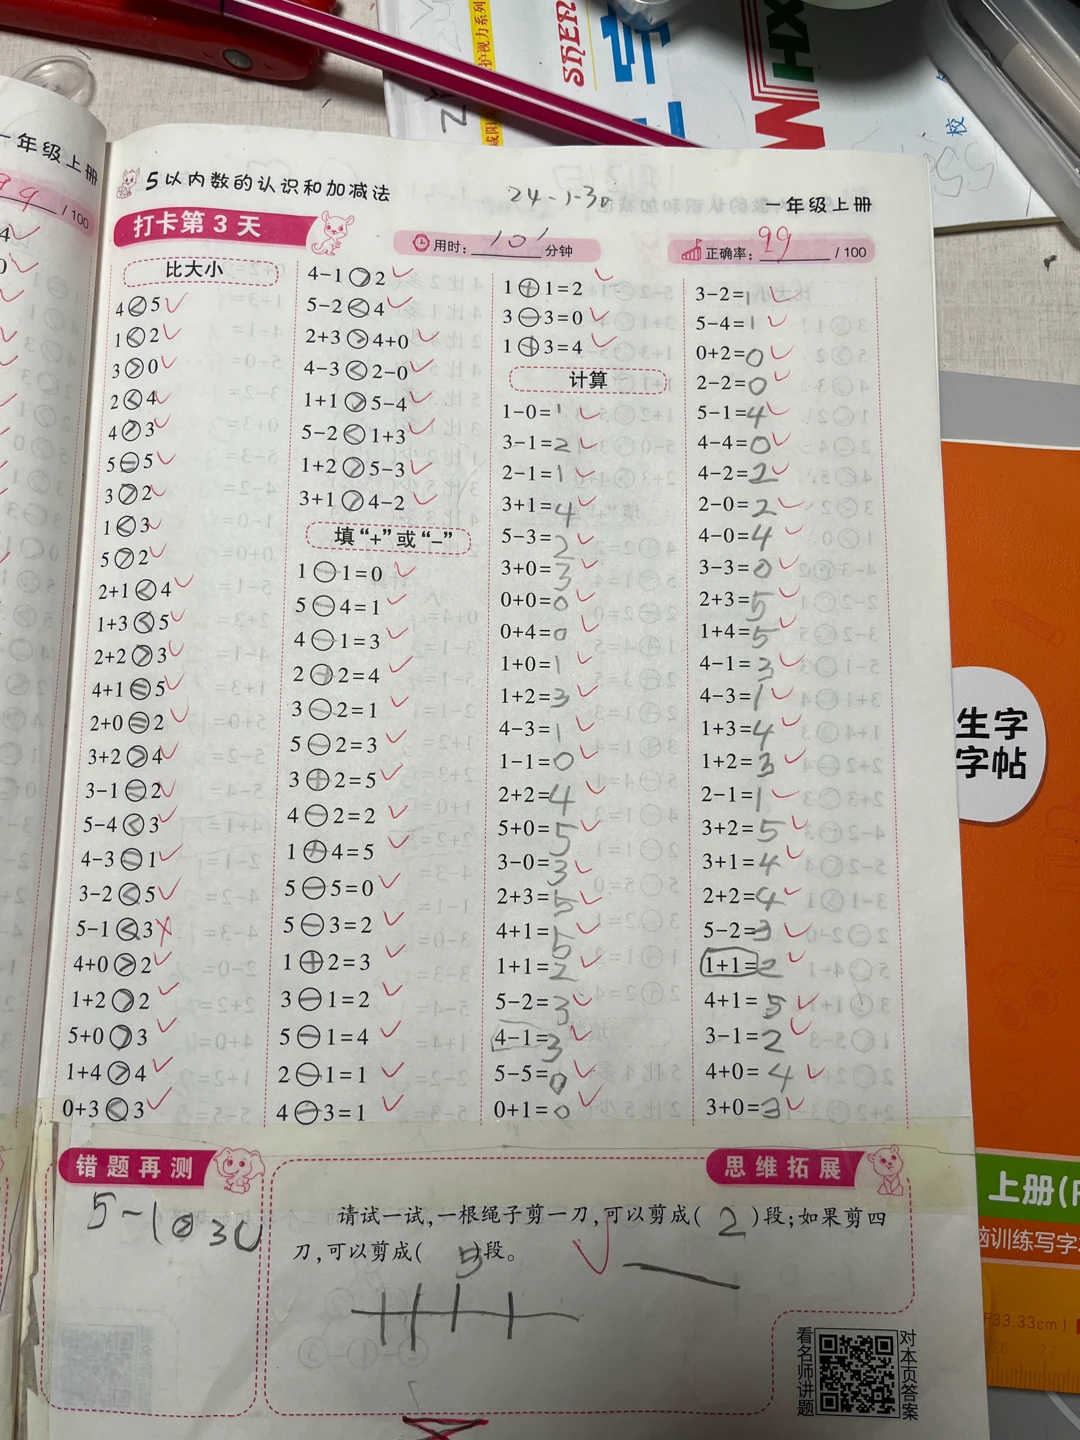 一年级上册
99 /100
5以内数的认识和加减法
24-1-30
一年级上册
打卡第3天
用时: 10' 分钟
正确率: 99 /100
比大小
4<5
1<2
3>0
2<4
4>3
5=5
3>2
1<3
5>2
2+1<4
1+3<5
2+2>3
4+1=5
2+0=2
3+2>4
3-1=2
5-4<3
4-3=1
3-2<5
5-1<3
4+0>2
1+2>2
5+0>3
1+4>4
0+3<3
4-1>2
5-2<4
2+3>4+0
4-3<2-0
1+1>5-4
5-2<1+3
1+2>5-3
3+1>4-2
填“+”或“-”
1-1=0
5-4=1
4-1=3
2+2=4
3-2=1
5-2=3
3+2=5
4-2=2
1+4=5
5-5=0
5-3=2
1+2=3
3-1=2
5-1=4
2-1=1
4-3=1
1+1=2
3-3=0
1+3=4
计算
1-0=1
3-1=2
2-1=1
3+1=4
5-3=2
3+0=3
0+0=0
0+4=0
1+0=1
1+2=3
4-3=1
1-1=0
2+2=4
5+0=5
3-0=3
2+3=5
4+1=5
1+1=2
5-2=3
4-1=3
5-5=0
0+1=0
3-2=1
5-4=1
0+2=0
2-2=0
5-1=4
4-4=0
4-2=2
2-0=2
4-0=4
3-3=0
2+3=5
1+4=5
4-1=3
4-3=1
1+3=4
1+2=3
2-1=1
3+2=5
3+1=4
2+2=4
5-2=3
1+1=2
4+1=5
3-1=2
4+0=4
3+0=3
错题再测
5-1>3
思维拓展
请试一试,一根绳子剪一刀,可以剪成( 2 )段;如果剪四
刀,可以剪成( 5 )段。
看名师讲题
对本页答案
SHEN
护视力系列
校
生字
字帖
上册
脑训练写字
33.33cm)
26 27